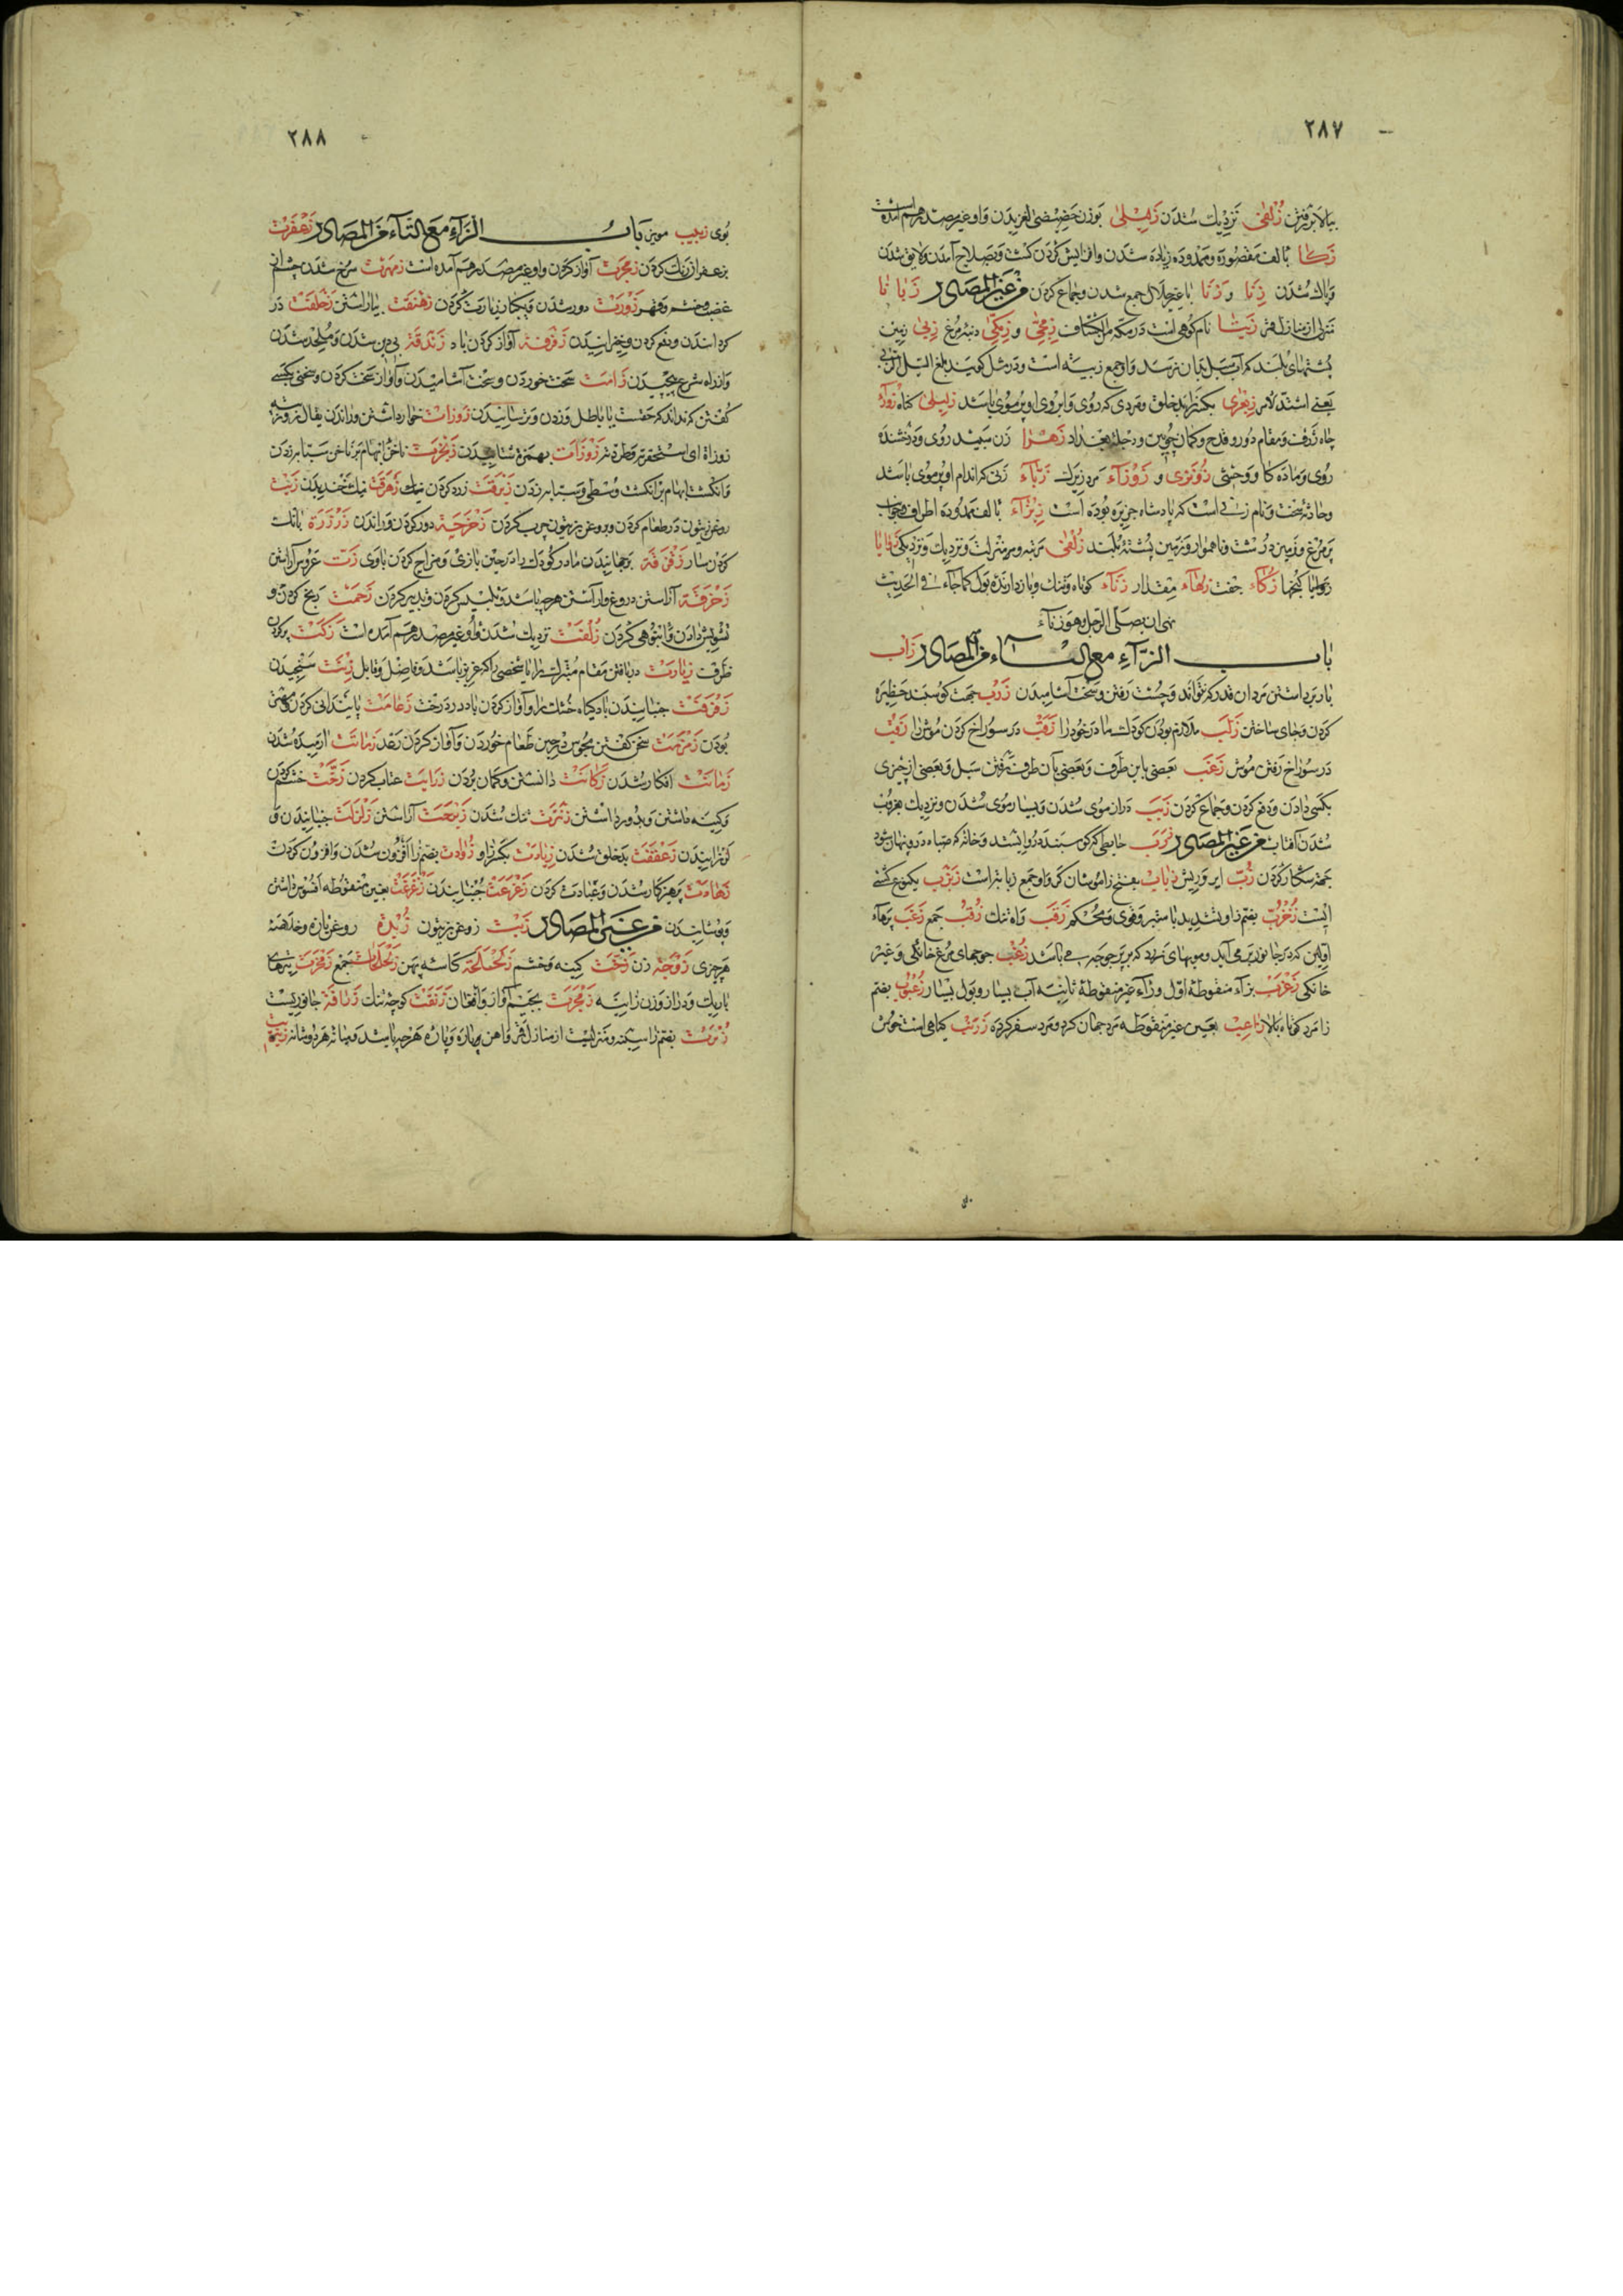 ۲۸۷
ببالا برفتن زُلْفیٰ نزدیك شدن زِهِلیٰ بوزن لغزیدن و او غیر مصدر هم آمده است
زَكا بالف مقصوره و ممدوده زیاده شدن و افزایش کردن کشت و بصلاح آمدن و لایق شدن
و پاك شدن زِنا و زنا با غیر حلال جمع شدن و جماع کردن من غیر المصادر زبانا
منزلی از منازل قمر نام کوهی است در مکه زِمِكّی و زِمِجّی دنبه مرغ زبیٰ زمین
پشتهای بلند که آب سیل بدان نرسد و او جمع زبیه است و در مثل گویند بلغ السیل الزبی
یعنی اشتد الامر زِبَعْری بکسر زا بدخلق و مردی که روی و ابروی او پر موی باشد
چاه ژرف و مقام دور و قدح و کمان چوبین و دجلهٔ بغداد زَهْرا زن سپید روی و درخشنده
روی و ماده گاو وحشی و زَوْزآء مرد زیرك زَبّآء زنی که اندام او پر موی باشد
و حادثهٔ سخت و نام زنی است که پادشاه جزیره بوده است زِیزآء بالف ممدوده اطراف
پر مرغ و زمین درشت و ناهموار و زمین پشتهٔ بلند زُلْفیٰ مرتبه و منزلت و نزدیك و نزدیکی زوایا
زوایا کنجها زَكاء جفت زُهآء مقدار زَنآء کوتاه و تنك و باز دارندهٔ بول كما جاء فی الحدیث
نهی ان یصلی الرجل و هو زنآء
باب الزآء مع البآء من المصادر زاب
بار برداشتن مرد آن قدر که تواند و چست رفتن و سخت آشامیدن زَرْب جهت گوسپند حظیره
کردن و جای ساختن زَلَب ملازم بودن کودك مادر خود را زَقْب در سوراخ کردن موش را
در سوراخ رفتن موش زَعْب بعضی باین طرف و بعضی بآن طرف رفتن سیل و بعضی از چیزی
بکسی دادن و دفع کردن و جماع کردن زَبَب دراز موی شدن و بسیار موی شدن و نزدیك بغروب
شدن آفتاب من غیر المصادر زَرَب حایطی که گوسپند درو باشند و خانه که صیاد درو پنهان شود
بجهة شکار کردن زُبّ ایر و ریش زَباب بفتح زا موشان کر و او جمع زبابه است یکنوع کشتی
ایست بضم زا و تشدید با ستبر و قوی و محکم زَقَب راه تنك جمع زَغَب پرهآء
اولین که در جانور بر می آید و مویهای زرد که بر پر جوجه می باشد زُغْب جوجهای مرغ خانگی و غیر
خانگی بزآء منقوطهٔ اول و رآء غیر منقوطهٔ ثانیه آب بسیار و بول بسیار بضم
زا مرد کوتاه بالا زاعِب بعین غیر منقوطه مرد جهان گرد و مرد سفر کرده زَرْنَب گیاهی است خوش
۲۸۸
بوی زبیب مویز باب الزآء مع التآء من المصادر زَعْفَرَت
بزعفران رنك کردن زمجرت آواز کردن و او غیر مصدر هم آمده است زمهرت سرخ شدن چشم از
غضب و خشم و قهر زورت دور شدن و یکبار زیارت کردن زهنقت بیاراستن زحلفت در
گردانیدن و دفع کردن و لغزانیدن زفزفة آواز کردن باد زندقة بی دین شدن و ملحد شدن
و از راه شرع پیچیدن زامت سخت خوردن و سخت آشامیدن و آواز سخت کردن و سخنی بکسی
گفتن که نداند که حقست یا باطل و زدن و ترسانیدن زوزات خوار داشتن و راندن یقال
زوزاه ای استحقره و طرده زَوْزَات بهمزه شتابیدن زنجرت ناخن ابهام بر ناخن سبابه زدن
و انگشت ابهام بر انگشت وسطی و سبابه زدن زبرقت زرد کردن زهزقت نیك خندیدن زیت
روغن زیتون در طعام کردن و بروغن زیتون چرب کردن زحزحة دور کردن و راندن زرزرة بانك
کردن سار زقزقة برجهانیدن مادر کودك را در حین بازی و مزاح کردن باوی زتت عروس آراستن
زخرفة آراستن دروغ و آراستن هر چه باشد و تلبیس کردن و تدبیر کردن زحمت رنج کردن و
تشویش دادن و انبوهی کردن زلفت نزدیك شدن و او غیر مصدر هم آمده است زکت پر کردن
ظرف زیارت دریافتن مقام متبرك را یا شخصی را که عزیز باشد و فاضل و قابل زینت سنجیدن
زفزفت جنبانیدن باد گیاه خشك را و آواز کردن باد در درخت زعامت پایندانی کردن و مهتر
بودن زمزمت سخن گفتن مجوس در حین طعام خوردن و آواز کردن رعد زمانت آرمیده شدن
زمانت افکار شدن زکانت دانستن و گمان بردن زرایت عتاب کردن زخّت خشم کردن
و کینه داشتن و بدور داشتن زنرت تنك شدن آراستن زلزلت جنبانیدن و
لرزانیدن زعقفت بدخلق شدن زیادت بکسر زا و زوادت بضم زا افزون شدن و افزون کردن
زهادت پرهیزکار شدن و عبادت کردن زعزعت جنبانیدن زغزغت بغین منقوطه افسوس داشتن
و پوشانیدن من غیر المصادر زیت روغن زیتون زُبْدَة روغن تازه و خلاصهٔ
هر چیزی زوجة زن زَخّت کینه و خشم زلحلحة کاسهٔ پهن زلحلحات جمع
باریك و دراز و زن زانیه زمجرت بجیم آواز و افغان زنقت کوچهٔ تنك زرافة جانوریست
زُبرت بضم زا سینه و منزلیست از منازل قمر و آهن پاره و پارهٔ هر چه باشد و میانهٔ هر دو شانه